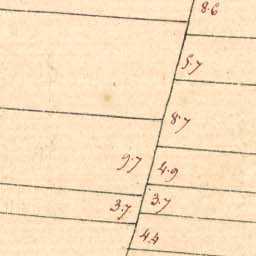 8.6
5.7
8.7
9.7 4.9
3.7 3.7
4.4